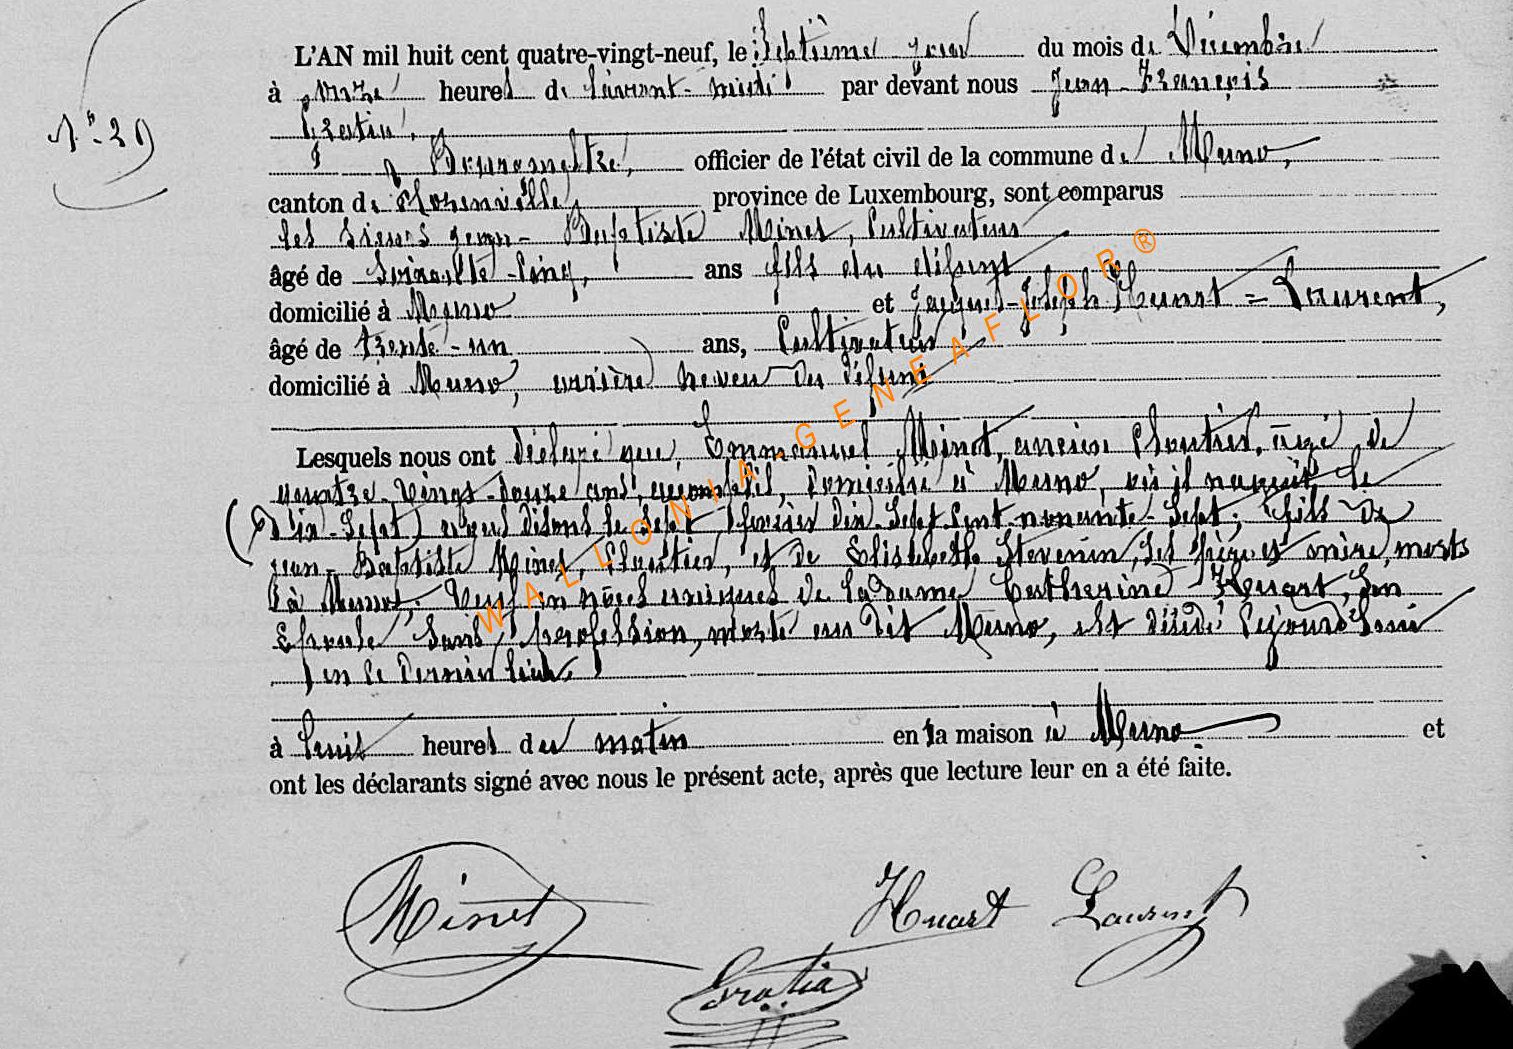 N° 29
L'AN mil huit cent quatre-vingt-neuf, le Septième jour du mois de Décembre
à onze heures de l'avant-midi par devant nous Jean-François
Gratia,
Bourgmestre, officier de l'état civil de la commune de Muno,
canton de Florenville, province de Luxembourg, sont comparus
les sieurs Jean-Baptiste Minet, Cultivateur
âgé de soixante-cinq, ans fils du défunt
domicilié à Muno et Jacques-Joseph Huart=Laurent,
âgé de trente-un ans, Cultivateur
domicilié à Muno, arrière neveu du défunt
Lesquels nous ont déclaré que Emmanuel Minet, ancien Cloutier, âgé de
quatre-vingt-douze ans, accomplis, domicilié à Muno, où il naquit le
(Dix-Sept) nous disons le sept février dix-sept cent nonante-sept; fils de
Jean-Baptiste Minet, Cloutier, et de Elisabeth Stevenin, ses père et mère, morts
à Muno; Veuf en noces uniques de la Dame Catherine Huart, son
Epouse Sans profession, morte au dit Muno, est décédé cejourd'hui
en ce dernier lieu,
à huit heures du matin en la maison à Muno et
ont les déclarants signé avec nous le présent acte, après que lecture leur en a été faite.
Minet
Huart Laurent
Gratia
WALLONIA-GENEAFLOR®